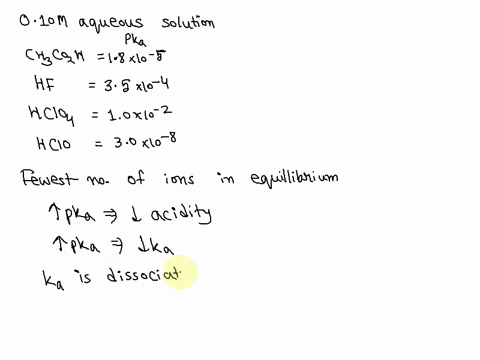 0.10M aqueous solution
Pka
CH3CO2H = 1.8 x 10-5
HF = 3.5 x 10-4
HClO4 = 1.0 x 10-2
HClO = 3.0 x 10-8
Fewest no. of ions in equillibrium
↑ pka ⇒ ↓ acidity
↑ pka ⇒ ↓ ka
ka is dissociat